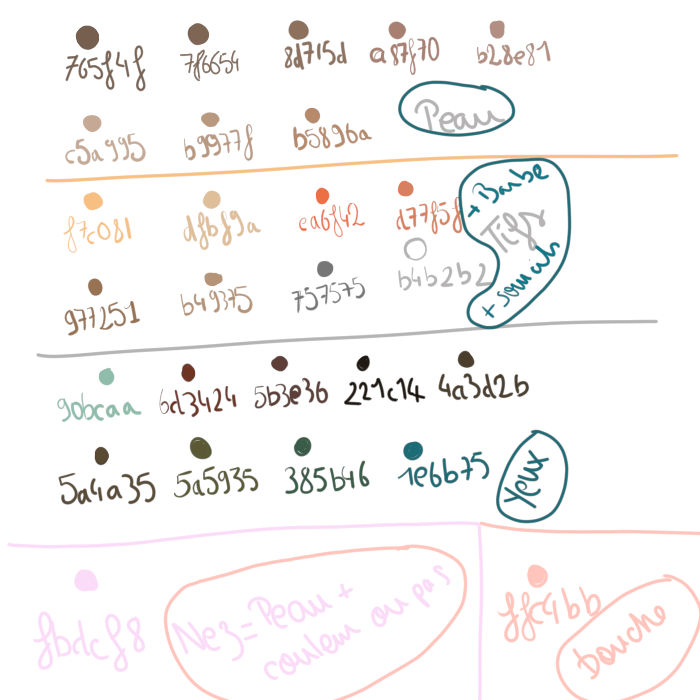 765f4f 7f6654 8d715d a87f70 b28e81
c5a995 b9977f b5896a Peau
f7c081 dfbf9a ea6f42 d77f5f + Barbe
Tifs
977251 b49375 757575 b4b2b2 + sourcils
90bcaa 6d3424 5b3e36 221c14 4a3d2b
5a4a35 5a5935 385b46 1e6b75 Yeux
fbdcf8 Nez=Peau +
couleur ou pas
ffc4bb
bouche